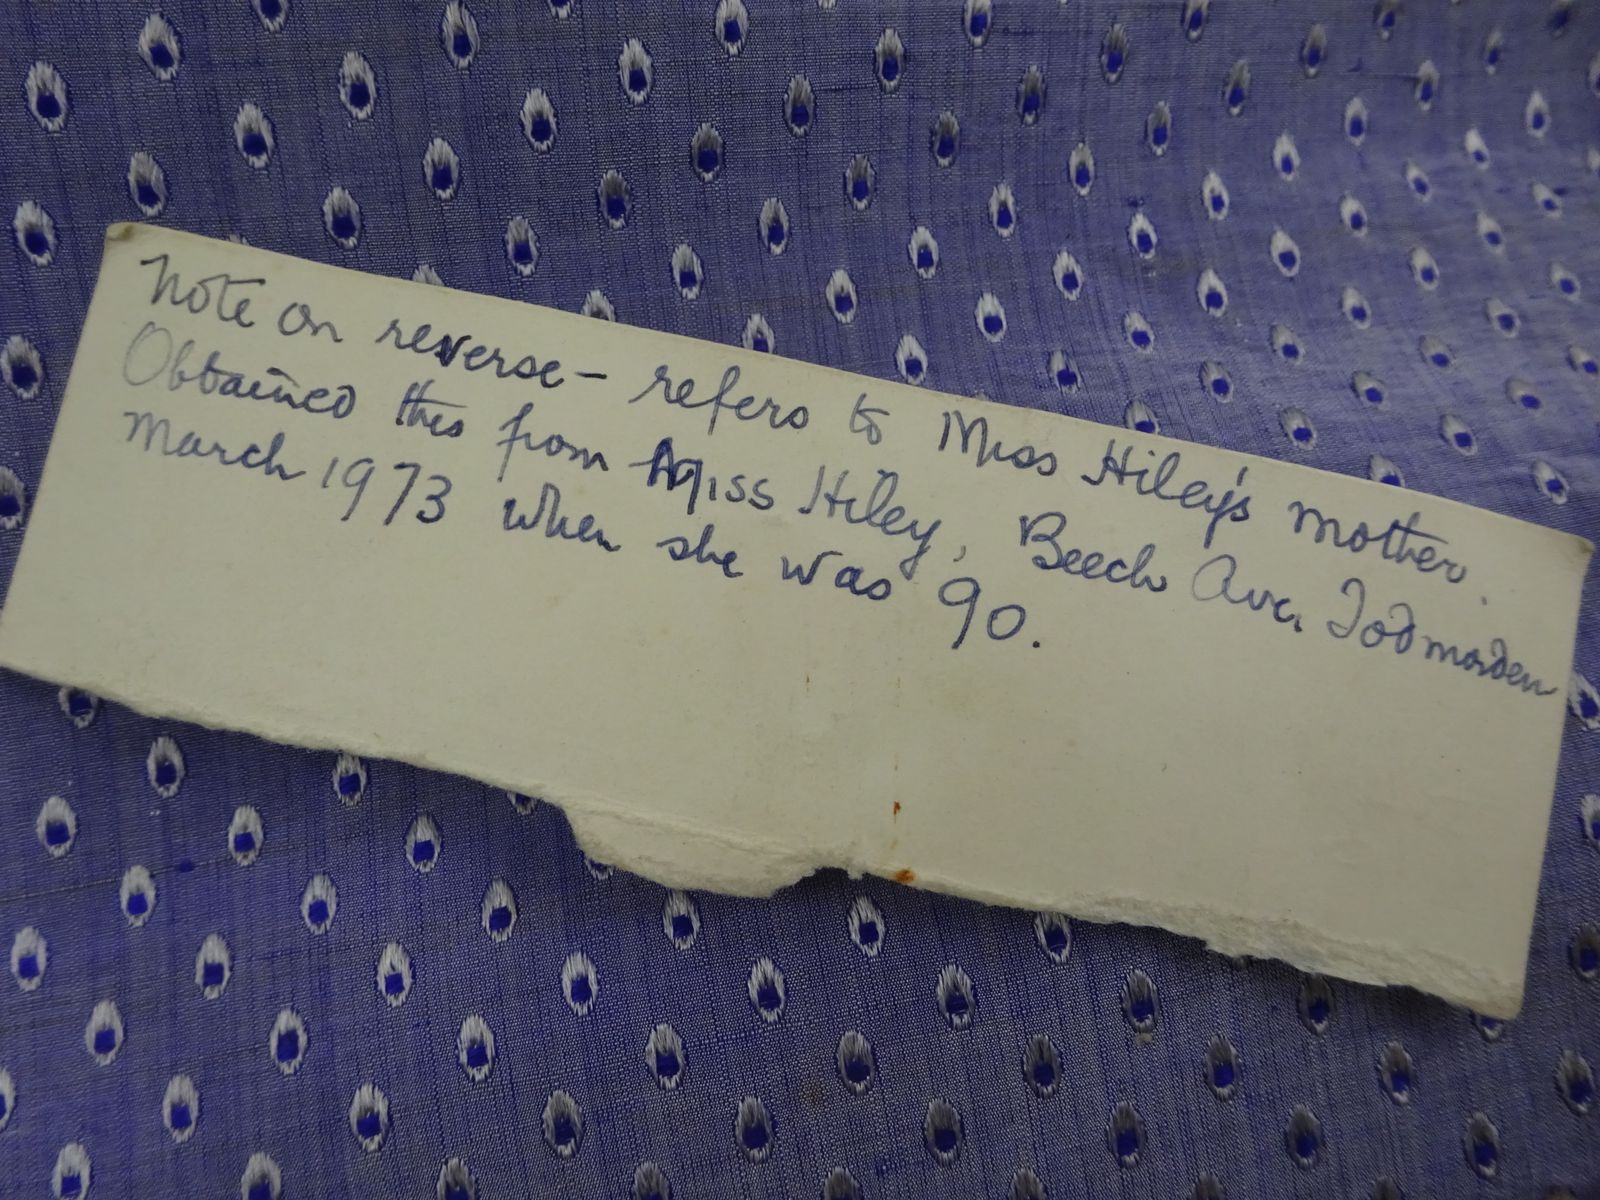 Note on reverse - refers to Miss Hiley's mother.
Obtained this from Miss Hiley, Beech Ave. Todmorden
March 1973 when she was 90.